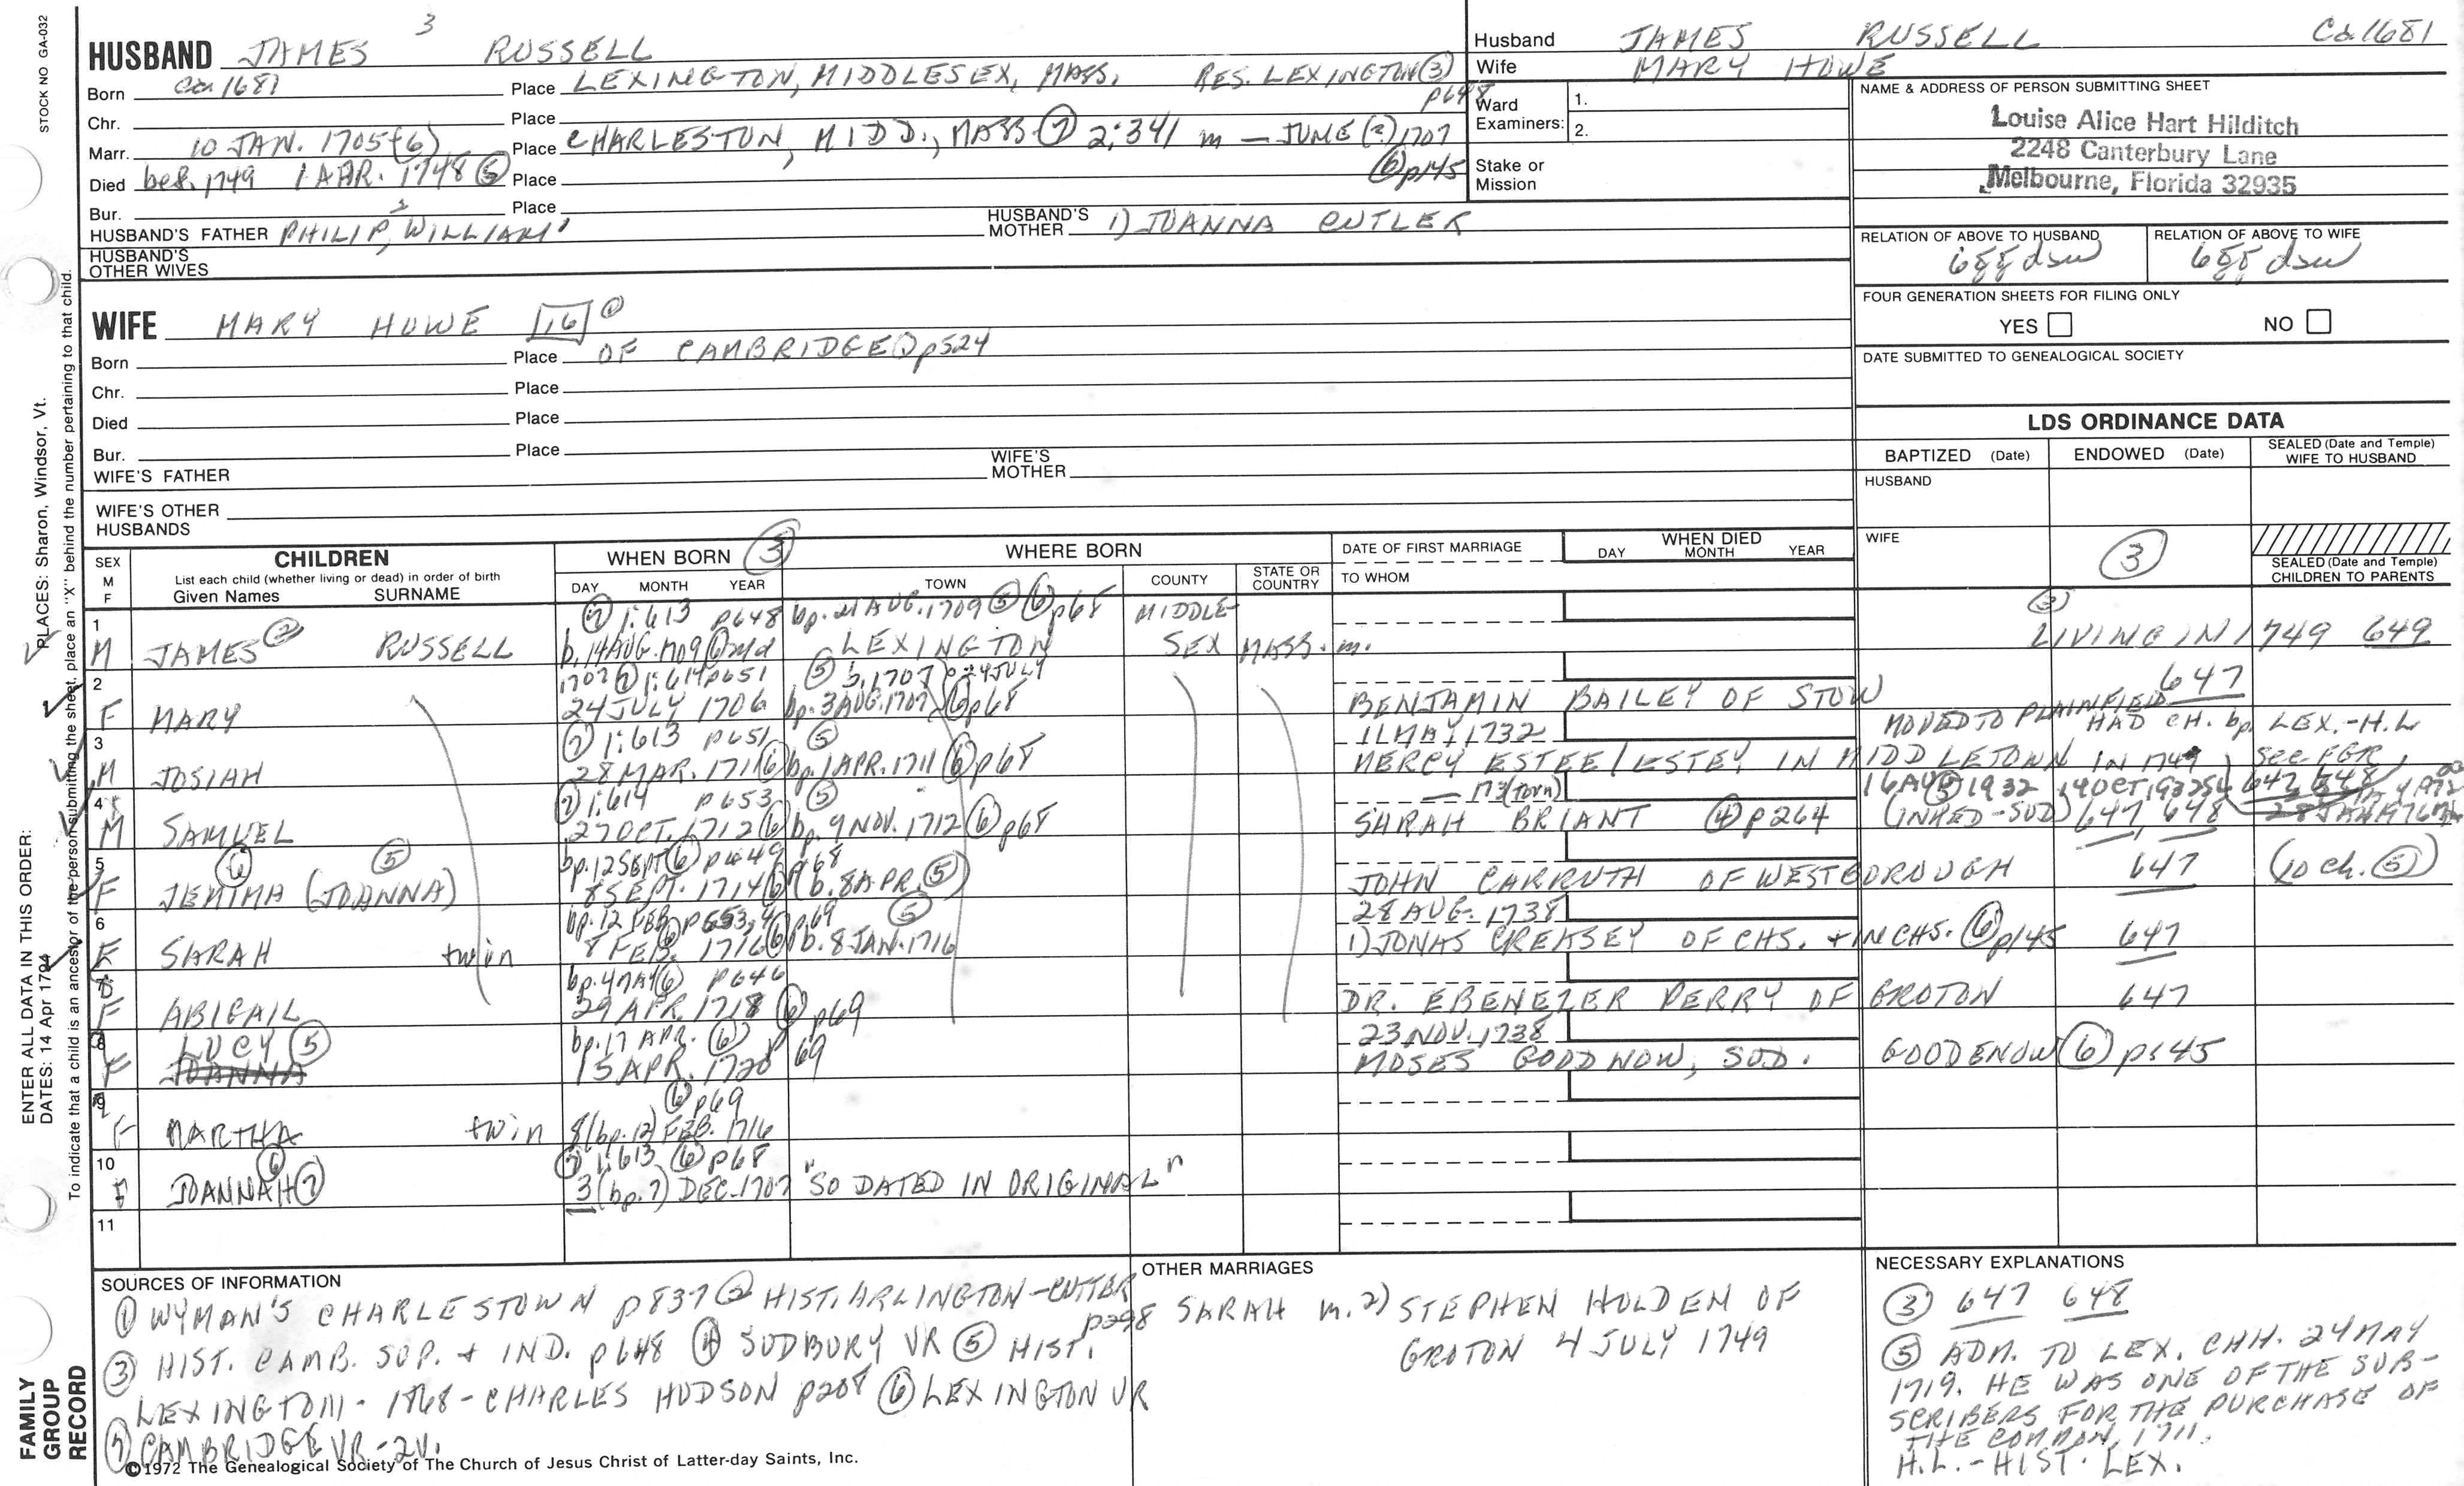 STOCK NO GA-032
3
HUSBAND JAMES RUSSELL
Born ca 1681 Place LEXINGTON, MIDDLESEX, MASS. RES. LEXINGTON (3) p648
Chr. Place
Marr. 10 JAN. 1705 (6) Place CHARLESTON, MIDD., MASS (7) 2:341 m — JUNE (2) 1707
Died bef. 1749 1 APR. 1748 (5) Place (6) p145
Bur. Place
HUSBAND'S FATHER PHILIP,2 WILLIAM1 HUSBAND'S MOTHER 1) JOANNA CUTLER
HUSBAND'S OTHER WIVES
WIFE MARY HOWE 16 (1)
Born Place OF CAMBRIDGE p524
Chr. Place
Died Place
Bur. Place
WIFE'S FATHER WIFE'S MOTHER
WIFE'S OTHER HUSBANDS
Husband JAMES RUSSELL Ca. 1681
Wife MARY HOWE
Ward Examiners: 1.
2.
Stake or Mission
NAME & ADDRESS OF PERSON SUBMITTING SHEET
Louise Alice Hart Hilditch
2248 Canterbury Lane
Melbourne, Florida 32935
RELATION OF ABOVE TO HUSBAND RELATION OF ABOVE TO WIFE
FOUR GENERATION SHEETS FOR FILING ONLY
YES NO
DATE SUBMITTED TO GENEALOGICAL SOCIETY
LDS ORDINANCE DATA
BAPTIZED (Date) ENDOWED (Date) SEALED (Date and Temple) WIFE TO HUSBAND
HUSBAND
WIFE (3)
SEALED (Date and Temple) CHILDREN TO PARENTS
SEX M F
CHILDREN
List each child (whether living or dead) in order of birth
Given Names SURNAME
WHEN BORN (3)
DAY MONTH YEAR
WHERE BORN
TOWN COUNTY STATE OR COUNTRY
DATE OF FIRST MARRIAGE
TO WHOM
WHEN DIED
DAY MONTH YEAR
1 (7) 1:613 p648 bp. 21 AUG. 1709 (5) (6) p68 MIDDLE- (3)
M JAMES (2) RUSSELL b. 14 AUG. 1709 (6) LEXINGTON SEX MASS. m. LIVING IN 1749 649
2 1707 (7) 1:614 p651 (5) b. 1707 24 JULY
F MARY 24 JULY 1706 bp. 3 AUG. 1707 (6) p68 BENJAMIN BAILEY OF STOW 647
MOVED TO PLAINFIELD HAD CH. bp. LEX. - H.L
3 (7) 1:613 p651 (5) 11 MAY 1732
M JOSIAH 28 MAR. 1711 (6) bp. 1 APR. 1711 (6) p68 MERCY ESTEE/ESTEY IN MIDDLETOWN IN 1749 See FGR
4 (7) 1:614 p653 (5) — 173 (torn) 16 AUG 1932
M SAMUEL 27 OCT. 1712 (6) bp. 9 NOV. 1712 (6) p68 SARAH BRIANT (4) p264 (INKED - SUD) 647, 648
5 (6) (5) bp. 12 SEPT (6) p649 p68
F JEMIMA (JOANNA) 8 SEPT. 1714 (6) (b. 8 APR. (5)) JOHN CARRUTH OF WESTBOROUGH 647 (10 ch. (5))
6 bp. 12 FEB p653,4 p69 (5) 28 AUG. 1738
F SARAH twin 8 FEB. 1716 (6) b. 8 JAN. 1716 1) JONAS CREASEY OF CHS. + IN CHS. (6) p145 647
7 bp. 4 MAY (6) p646
F ABIGAIL 29 APR. 1718 (6) p69 DR. EBENEZER PERRY OF GROTON 647
8 LUCY (5) bp. 17 APR. (6) p69 23 NOV. 1738
F JOANNA 15 APR. 1720 MOSES GOODNOW, SUD. GOODENOW (6) p145
9 (6) p69
F MARTHA twin 8 (bp. 12) FEB. 1716
10 (6) (7) 1:613 (6) p68
F JOANNAH (7) 3 (bp. 7) DEC. 1707 "SO DATED IN ORIGINAL"
11
SOURCES OF INFORMATION
(1) WYMAN'S CHARLESTOWN p837 (2) HIST. ARLINGTON - CUTTER p298
(3) HIST. CAMB. SUP. + IND. p648 (4) SUDBURY VR (5) HIST.
LEXINGTON - 1868 - CHARLES HUDSON p208 (6) LEXINGTON VR
(7) CAMBRIDGE VR - 2V.
OTHER MARRIAGES
SARAH m. 2) STEPHEN HOLDEN OF
GROTON 4 JULY 1749
NECESSARY EXPLANATIONS
(3) 647 648
(5) ADM. TO LEX. CHH. 24 MAY
1719. HE WAS ONE OF THE SUB-
SCRIBERS FOR THE PURCHASE OF
THE COMMON, 1711.
H.L. - HIST. LEX.
©1972 The Genealogical Society of The Church of Jesus Christ of Latter-day Saints, Inc.
FAMILY GROUP RECORD
ENTER ALL DATA IN THIS ORDER:
DATES: 14 Apr 1794
PLACES: Sharon, Windsor, Vt.
To indicate that a child is an ancestor of the person submitting the sheet, place an "X" behind the number pertaining to that child.